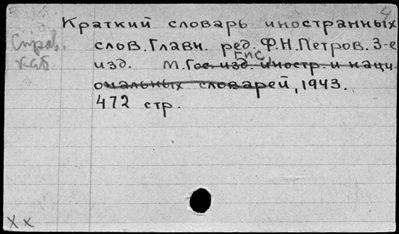 4
Краткий словарь иностранных
Справ. слов. Главн. ред. Ф.Н.Петров. 3-е
каб
ГИС
изд. М. Гос. изд. иностр. и наци
ональных словарей, 1943.
472 стр.
х х